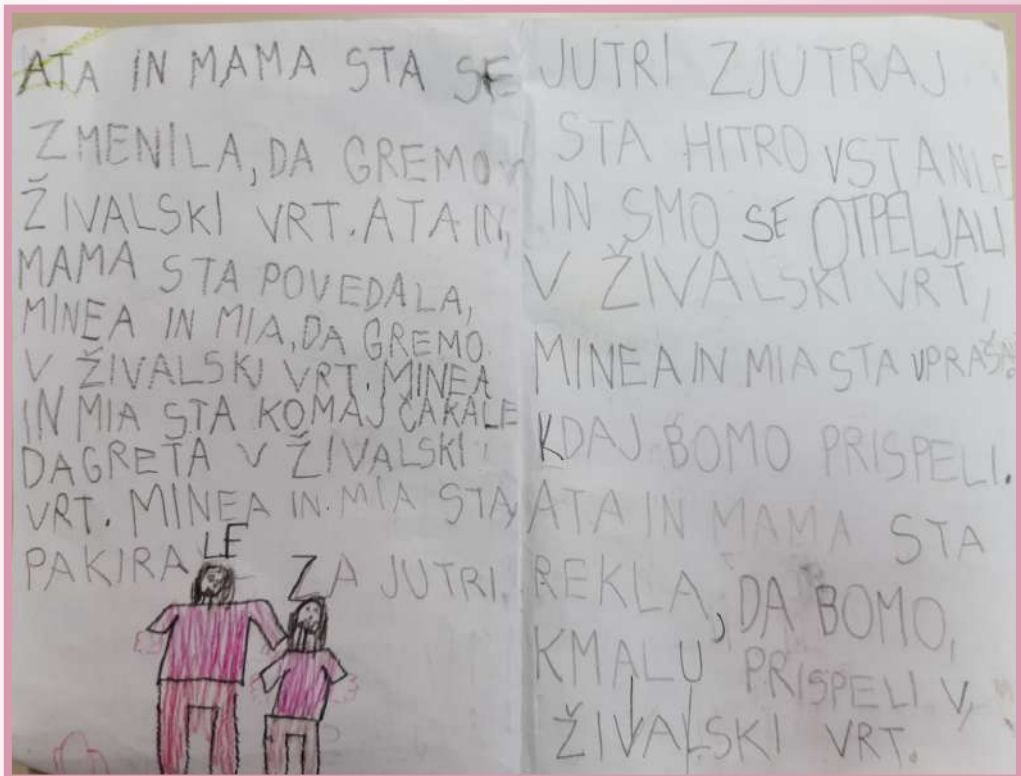 ATA IN MAMA STA SE
ZMENILA, DA GREMO V
ŽIVALSKI VRT. ATA IN,
MAMA STA POVEDALA,
MINEA IN MIA, DA GREMO
V ŽIVALSKI VRT. MINEA
IN MIA STA KOMAJ ČAKALE
DAGRETA V ŽIVALSKI
VRT. MINEA IN MIA STA
PAKIRALE ZA JUTRI.
JUTRI ZJUTRAJ
STA HITRO VSTANLE
IN SMO SE OTPELJALI
V ŽIVALSKI VRT,
MINEA IN MIA STA
KDAJ BOMO PRISPELI.
ATA IN MAMA STA
REKLA, DA BOMO,
KMALU PRISPELI V,
ŽIVALSKI VRT.